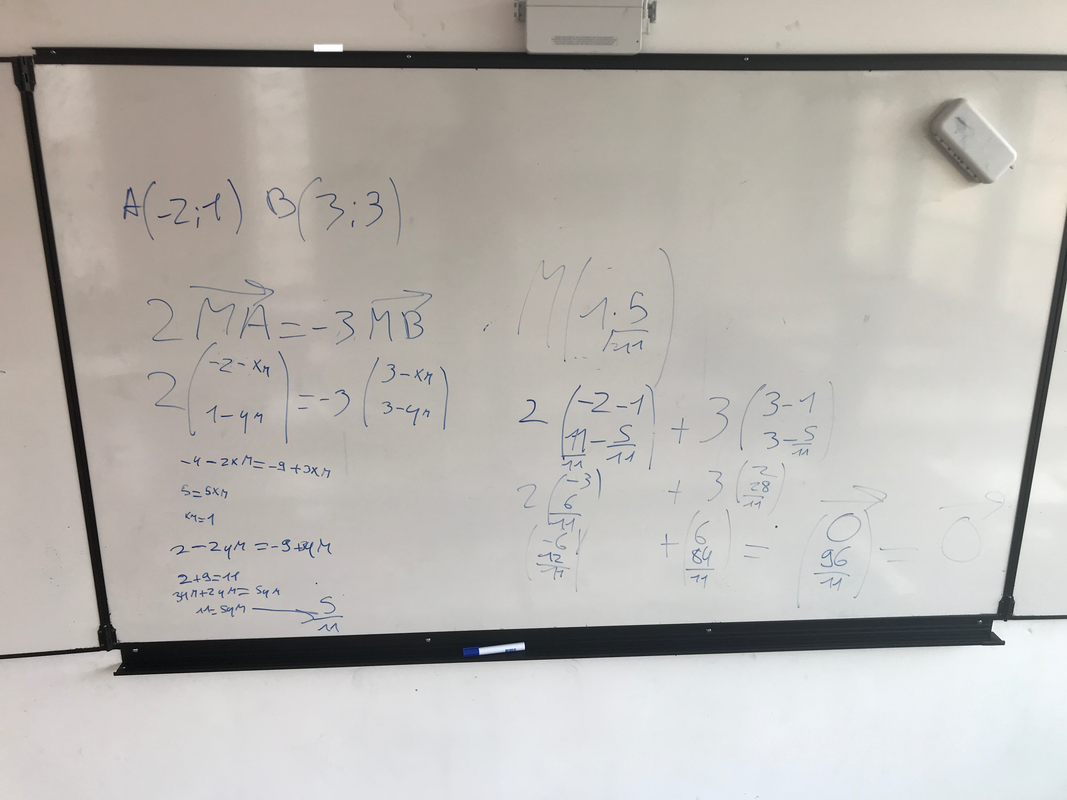 A(-2;1) B(3;3)
2 MA = -3 MB
2 (-2-xM = -3 (3-xM
1-yM) 3-yM)
-4-2xM=-9+3xM
5=5xM
xM=1
2-2yM=-9+3yM
2+9=11
3yM+2yM=5yM
11=5yM → 5/11
M(1.5/11)
2 (-2-1 + 3 (3-1
11/11-5/11) 3-5/11)
2 (-3 + 3 (2
6/11) 28/11)
(-6 + (6 = (0 = 0
12/11) 84/11) 96/11)